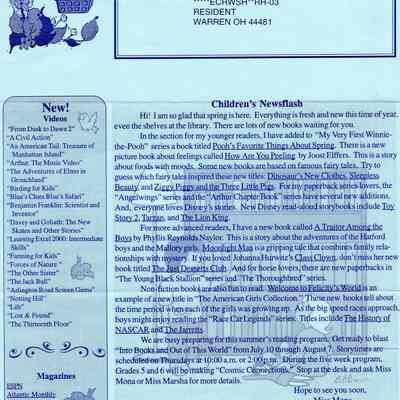 ****ECHWSH**RH-03
RESIDENT
WARREN OH 44481
New!
Videos
"From Dusk to Dawn 2"
"A Civil Action"
"An American Tail: Treasure of
Manhattan Island"
"Arthur: The Movie Video"
"The Adventures of Elmo in
Grouchland"
"Birding for Kids"
"Blue's Clues Blue's Safari"
"Benjamin Franklin: Scientist and
Inventor"
"Davey and Goliath: The New
Skates and Other Stories"
"Learning Excel 2000: Intermediate
Skills"
"Farming for Kids"
"Forces of Nature"
"The Other Sister"
"The Jack Bull"
"Arlington Road Screen Gems"
"Notting Hill"
"Life"
"Lost & Found"
"The Thirteenth Floor"
Magazines
ESPN
Atlantic Monthly
Children's Newsflash
Hi! I am so glad that spring is here. Everything is fresh and new this time of year,
even the shelves at the library. There are lots of new books waiting for you.
In the section for my younger readers, I have added to "My Very First Winnie-
the-Pooh" series a book titled Pooh's Favorite Things About Spring. There is a new
picture book about feelings called How Are You Peeling by Joost Elffers. This is a story
about foods with moods. Some new books are based on famous fairy tales. Try to
guess which fairy tales inspired these new titles: Dinosaur's New Clothes, Sleepless
Beauty, and Ziggy Piggy and the Three Little Pigs. For my paperback series lovers, the
"Angelwings" series and the "Arthur Chapter Book" series have several new additions.
And, everyone loves Disney's stories. New Disney read-aloud storybooks include Toy
Story 2, Tarzan, and The Lion King.
For more advanced readers, I have a new book called A Traitor Among the
Boys by Phyllis Reynolds Naylor. This is a story about the adventures of the Hatford
boys and the Mallory girls. Moonlight Man is a gripping tale that combines family rela-
tionships with mystery. If you loved Johanna Hurwitz's Class Clown, don't miss her new
book titled The Just Desserts Club. And for horse lovers, there are new paperbacks in
"The Young Black Stallion" series and "The Thoroughbred" series.
Non-fiction books are also fun to read. Welcome to Felicity's World is an
example of a new title in "The American Girls Collection." These new books tell about
the time period when each of the girls was growing up. As the big speed races approach,
boys might enjoy reading the "Race Car Legends" series. Titles include The History of
NASCAR and The Jarretts.
We are busy preparing for this summer's reading program. Get ready to blast
"Into Books and Out of This World" from July 10 through August 7. Storytimes are
scheduled on Thursdays at 10:00 a.m. or 2:00 p.m. During the five week program,
Grades 5 and 6 will by making "Cosmic Connections." Stop at the desk and ask Miss
Mona or Miss Marsha for more details.
Hope to see you soon,
Miss Mona